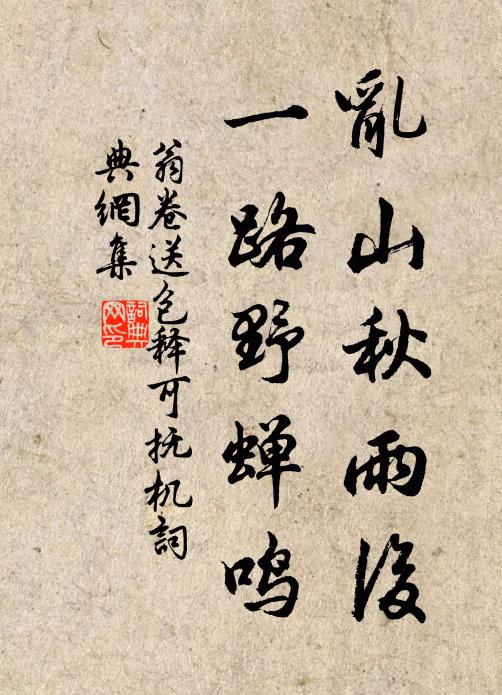 亂山秋雨後
一路野蟬鸣
翁卷送包释可抚机詞
典網集
詞典
网印